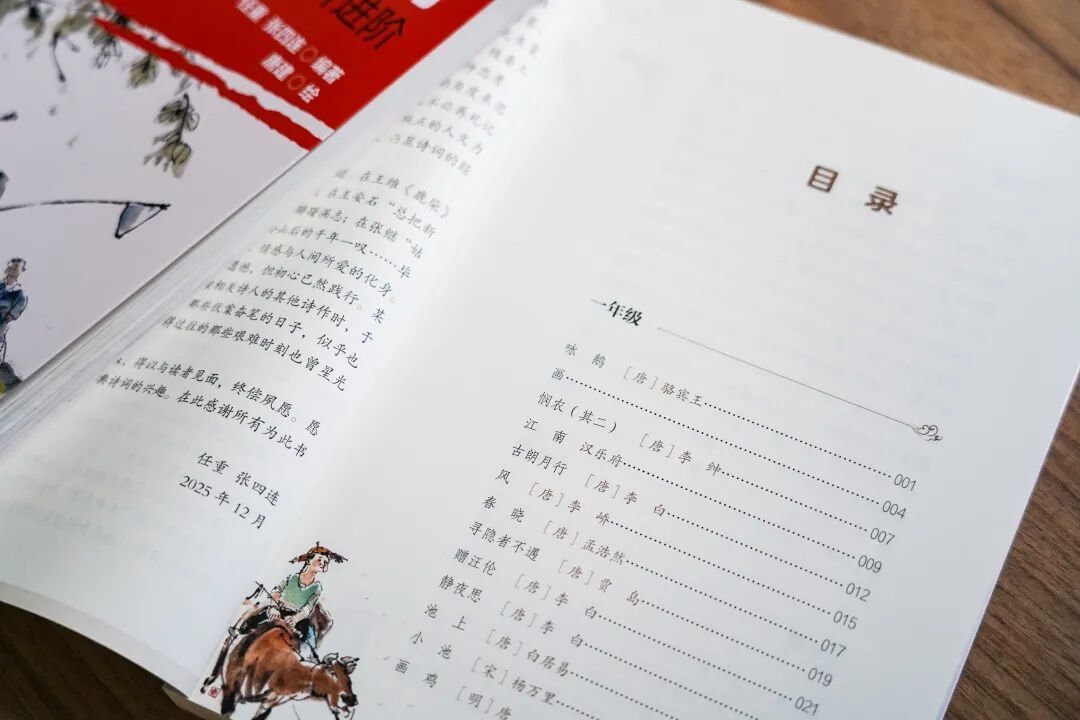 进阶
任重 张四连◎编著
唐建◎绘
在王维《鹿柴》
在王安石“总把新
踌躇满志；在张继“姑
山后的千年一叹……毕
情感与人间所爱的化身。
遗憾，但初心已然践行。某
相关诗人的其他诗作时，于
那些伏案奋笔的日子，似乎也
得过往的那些艰难时刻也曾星光
，得以与读者见面，终偿夙愿。愿
典诗词的兴趣。在此感谢所有为此书
任重 张四连
2025年12月
目录
一年级
咏鹅 [唐]骆宾王 001
画 004
悯农（其二） [唐]李绅 007
江南 汉乐府 009
古朗月行 [唐]李白 012
风 [唐]李峤 015
春晓 [唐]孟浩然 017
寻隐者不遇 [唐]贾岛 019
赠汪伦 [唐]李白 021
静夜思 [唐]李白
池上 [唐]白居易
小池 [宋]杨万里
画鸡 [明]唐